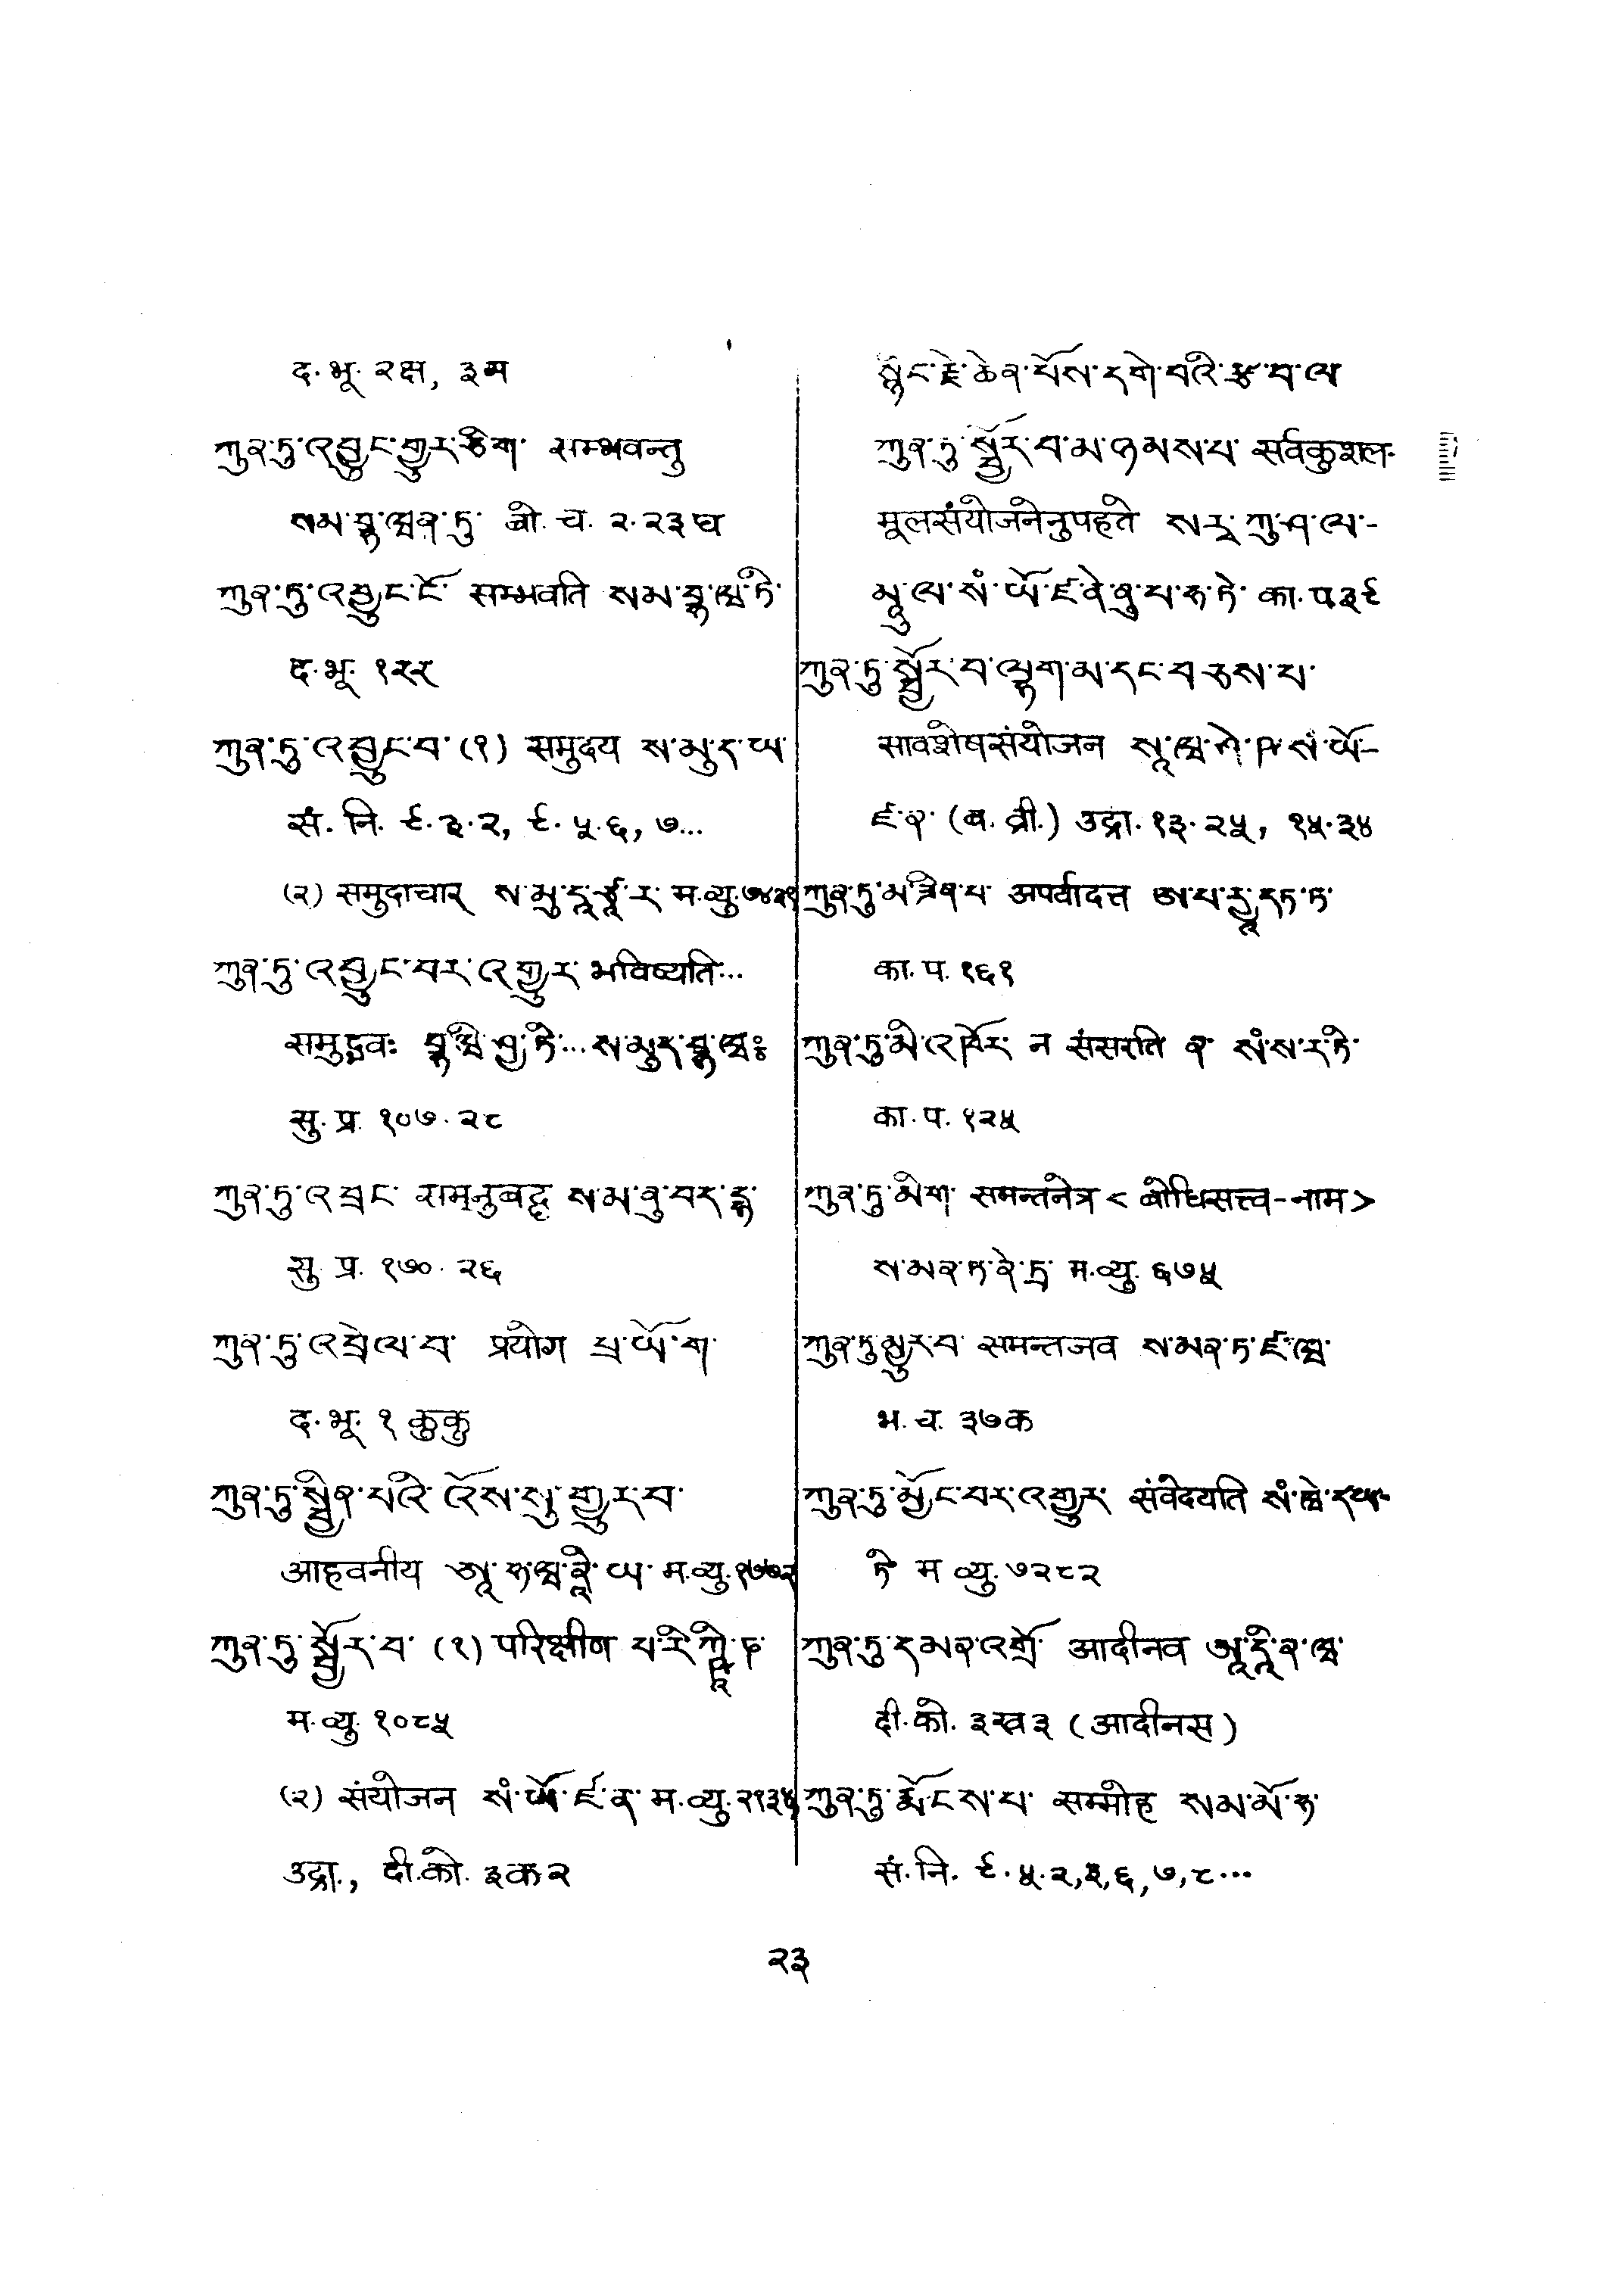 द. भू. २क्ष, ३म
ཀུན་ཏུ་འབྱུང་གྱུར་ཅིག་ सम्भवन्तु
སམ་བྷ་ཝན་ཏུ་ बो. च. २.२३घ
ཀུན་ཏུ་འབྱུང་ངོ་ सम्भवति སམ་བྷ་ཝ་ཏི་
द. भू. १२र
ཀུན་ཏུ་འབྱུང་བ་ (१) समुदय ས་མུ་ད་ཡ་
सं. नि. ९.३.२, ९.५.६, ७...
(२) समुदाचार ས་མུ་དཱ་ཙཱ་ར་ म.व्यु.
ཀུན་ཏུ་འབྱུང་བར་འགྱུར་ भविष्यति...
समुद्भवः བྷ་ཝི་ཥྱ་ཏི་...ས་མུད་བྷ་ཝཿ
सु. प्र. १०७.२८
ཀུན་ཏུ་འབྲང་ समनुबद्ध ས་མ་ནུ་བད་དྷ་
सु. प्र. १७०.२६
ཀུན་ཏུ་འབྲེལ་བ་ प्रयोग པྲ་ཡོ་ག་
द. भू. १ कुकु
ཀུན་ཏུ་སྦྱིན་པའི་འོས་སུ་གྱུར་བ་
आहवनीय ཨཱ་ཧ་ཝ་ནཱི་ཡ་ म.व्यु.१७७२
ཀུན་ཏུ་སྦྱོར་བ་ (१) परिक्षीण པ་རི་ཀྵཱི་ཎ་
म.व्यु. १०८५
(२) संयोजन སཾ་ཡོ་ཛ་ན་ म.व्यु.२१३४
उद्रा., दी.को. ३क२
སྙིང་རྗེ་ཆེན་པོས་དགེ་བའི་རྩ་བ་ལ
ཀུན་ཏུ་སྦྱོར་བ་མ་ཉམས་པ་ सर्वकुशल-
मूलसंयोजनेनुपहते སརྦ་ཀུ་ཤ་ལ་-
མཱུ་ལ་སཾ་ཡོ་ཛ་ནེ་ནུ་པ་ཧ་ཏེ་ का. प.३९
ཀུན་ཏུ་སྦྱོར་བ་ལྷག་མ་དང་བཅས་པ་
सावशेषसंयोजन སཱ་ཝ་ཤེ་ཥ་སཾ་ཡོ་-
ཛ་ན་ (ब. व्री.) उद्रा. १३.२५, १५.३४
ཀུན་ཏུ་མ་ཟིན་པ་ अपर्वादत्त ཨ་པ་རྱཱ་དཏ་ཏ་
का. प. १६१
ཀུན་ཏུ་མི་འཁོར་ न संसरति ན་ སཾ་ས་ར་ཏི་
का. प. १२५
ཀུན་ཏུ་མིག་ समन्तनेत्र < बोधिसत्त्व-नाम >
ས་མན་ཏ་ནེ་ཏྲ་ म.व्यु. ६७५
ཀུན་ཏུ་མྱུར་བ་ समन्तजव ས་མན་ཏ་ཛ་ཝ་
भ. च. ३७क
ཀུན་ཏུ་མྱོང་བར་འགྱུར་ संवेदयति སཾ་ཝེ་དཡ་
ཏི་ म व्यु. ७२८२
ཀུན་ཏུ་དམན་འགྲོ་ आदीनव ཨཱ་དཱི་ན་ཝ་
दी.को. ३ख३ (आदीनस)
ཀུན་ཏུ་རྨོངས་པ་ सम्मोह སམ་མོ་ཧ་
सं.नि. ९.५.२,३,६,७,८...
२३